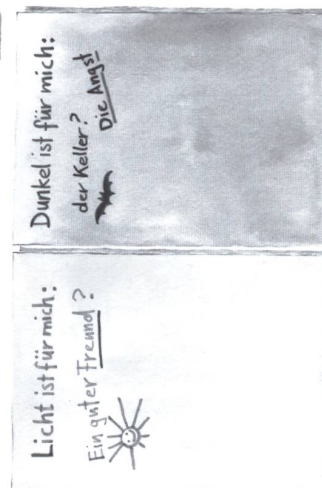 Licht ist für mich:
Ein guter Freund?
Dunkel ist für mich:
der Keller?
Die Angst